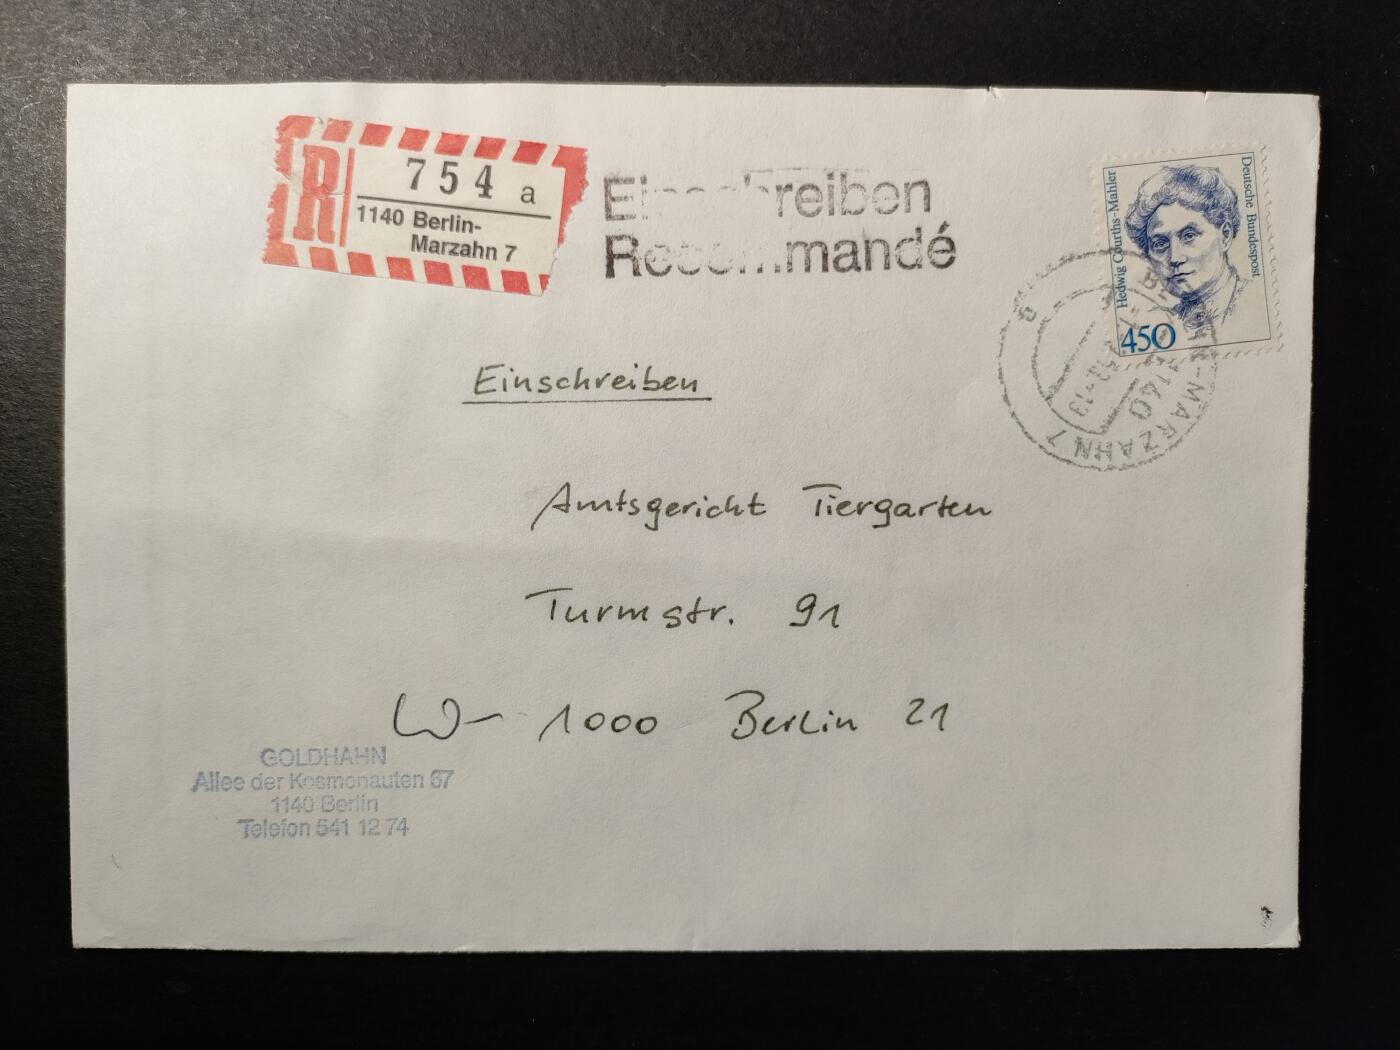 R
754 a
1140 Berlin-
Marzahn 7
Einschreiben
Recommandé
Deutsche Bundespost
Hedwig Courths-Mahler
450
1140
-MARZAHN 7
Einschreiben
Amtsgericht Tiergarten
Turmstr. 91
W- 1000 Berlin 21
GOLDHAHN
Allee der Kosmonauten 67
1140 Berlin
Telefon 541 12 74